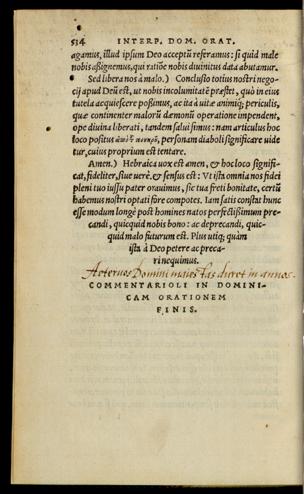 514 INTERP. DOM. ORAT.
agamus, illud ipsum Deo acceptũ referamus: si quid male
nobis aßignemus, qui ratiõe nobis diuinitus data abutamur.
Sed libera nos à malo.) Conclusio totius nostri nego-
cij apud Deũ est, ut nobis incolumitatẽ præstet, quò in eius
tutela acquiescere poßimus, ac ita à uitæ animiq; periculis,
quæ continenter malorũ dæmonũ operatione impendent,
ope diuina liberati, tandem salui simus: nam articulus hoc
loco positus ἀπὸ τ πονηρῦ, personam diaboli significare uide
tur, cuius proprium est tentare.
Amen.) Hebraica uox est amen, & hoc loco signifi-
cat, fideliter, siue uerè. & sensus est: Vt ista omnia nos fidei
pleni tuo iussu pater orauimus, sic tua freti bonitate, certũ
habemus nostri optati fore compotes. Iam satis constat hunc
esse modum longè post homines natos perfectißimum pre-
candi, quicquid nobis bono: ac deprecandi, quic-
quid malo futurum est. Plus utiq; quàm
ista à Deo petere ac preca-
ri nequimus.
Domini in annos.
COMMENTARIOLI IN DOMINI-
CAM ORATIONEM
FINIS.